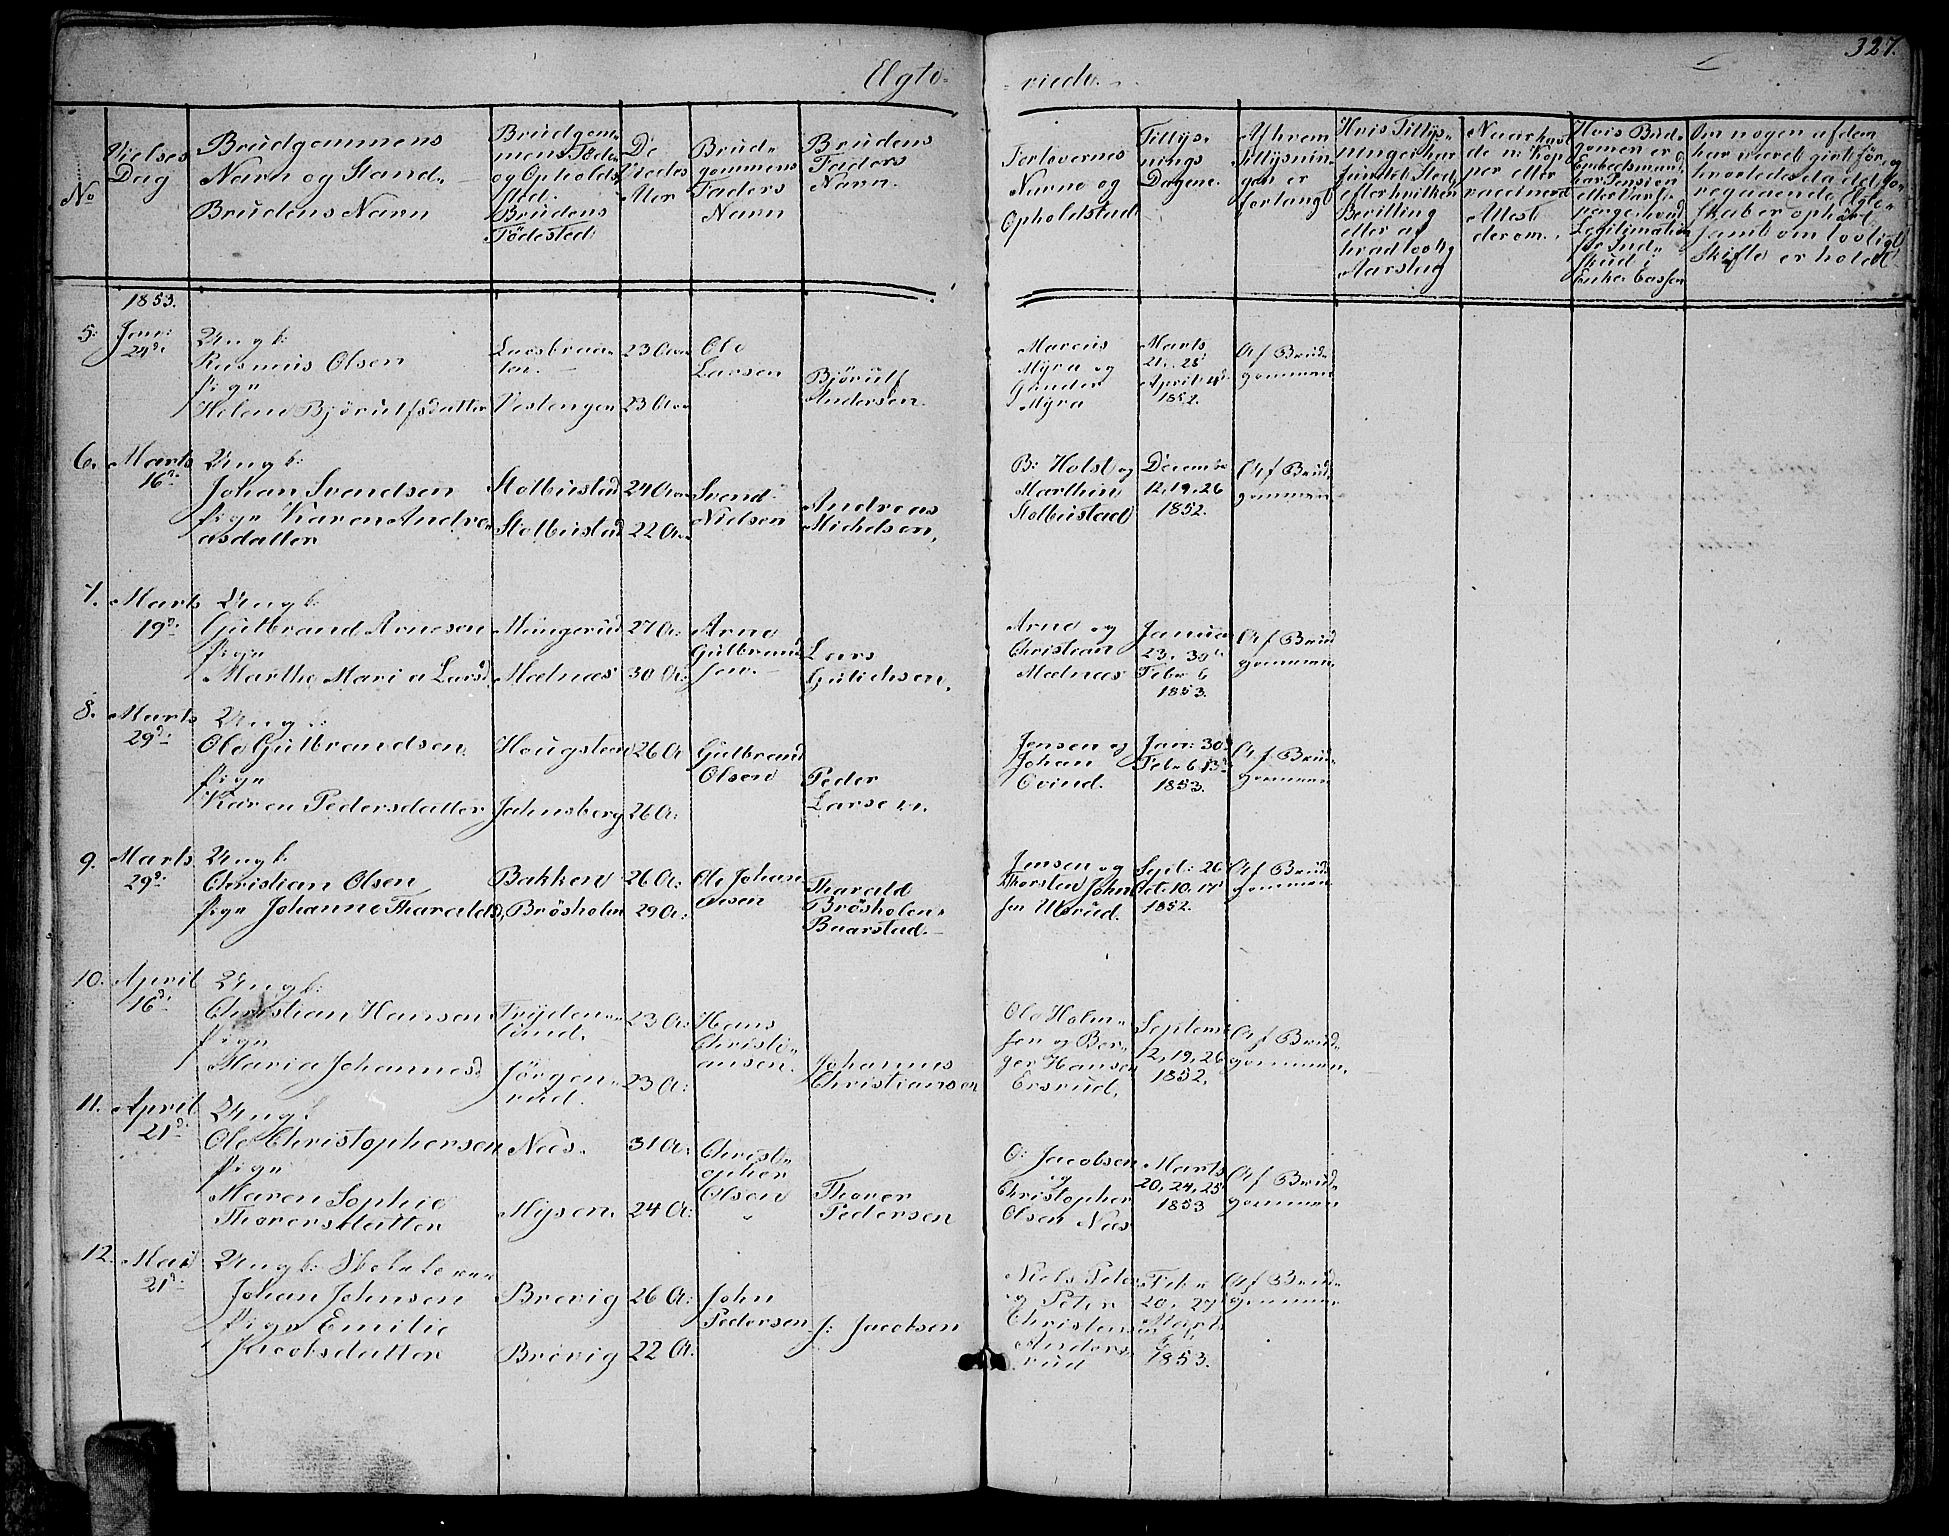 327.
Egte-
-viede.
No
Vielses
Dag
Brudgommens
Navn og Stand
Brudens Navn
Brudgom-
mens Føde-
og Opholds
sted.
Brudens
Fødested
De
Viedes
Aler
Brud-
gommens
Faders
Navn
Brudens
Faders
Navn.
Forlovernes
Navne og
Opholdsted
Tillys-
nings
Dagene.
Af hvem
Tillysnin-
gen er
forlangt
Hvis Tillys-
ninger har
fundet Sted,
efter hvilken
Bevilling
eller af
hvad lovlig
Aarsag
Naar havt
de n: Kop-
per eller
vaccineret
Attest
derom.
Hvis Brud-
gomen er
Embedsmand,
har Pension
eller Varte-
penge, hvad
Legitimation
for Ind-
skud i
Enke Cassen
Om nogen af dem
har været gift før, og
hvorledes da det fo-
regaaende Ægte-
skab er ophørt
samt om lovligt
Skifte er holdt
1853.
5. Jan:
24de
Ungk:
Rasmus Olsen
pige
Helene Bjørulfsdatter
Vestengen
23 Aar
23 Aar
Ole
Larsen
Bjørulf
Andersen.
Marcus
Myra og
Gunder
Myra
Marts
21. 28
April 4de
1852.
Af Brud-
gommen
6. Marts
16de
Ungk:
Johan Svendsen
pige Karen Andre-
asdatter
Stolbustad
Stolbustad
24 Aar
22 Aar
Svend
Nielsen
Andreas
Michelsen,
B: Holst og
Marthin
Stolbustad
Decembr
12, 19, 26
1852.
Af Brud-
gommen
7. Marts
19de
Ungk:
Gulbrand Arnesen
pige
Marthe Maria Larsd
Mungerud
Mælnæs
27 A:
30 A:
Arne
Gulbrand
sen.
Lars
Gulichsen,
Arne og
Christian
Mælnæs
Janua
23. 30te
Febr 6
1853.
Af Brud
gommen
8. Marts
29de
Ungk:
Ole Gulbrandsen
pige
Karen Pedersdatter
Hougsteen
Jahnsberg
26 A
26 A:
Gulbrand
Olsen
Peder
Larsen.
Jensen og
Johan
Ovind.
Jan: 30
Febr 6. 13de
1853.
Af Brud-
gommen
9. Marts
29de
Ungk:
Christian Olsen
pige Johanne Tharalds
Bakken
Brøsholm
26 A:
29 A:
Ole Johan
nesen
Tharald
Brøsholen-
Baarstad.
Jensen og
Thorsten John
sen Ubsrud.
Sept: 26
Oct. 10. 17
1852.
Af Brud
gommen
10. April
16de
Ungk:
Christian Hansen
pige
Maria Johannesd
Fryden-
lund.
Jørgen-
rud.
23 A:
23 A:
Hans
Christi-
ansen.
Johannes
Christiansen
Ole Holm-
sen og Ber-
ger Hansen
Ersrud,
Septem
12, 19, 26
1852.
Af Brud-
gommen.
11. April
21de
Ungk
Ole Christophersen
pige
Maren Sophie
Thorersdatter
Næs.
Mysen
31 A:
24 A:
Christ-
opher
Olsen
Thorer
Pedersen
O: Jacobsen
og
Christopher
Olsen Næs
Marts
20, 24, 25
1853
Af Brud-
gommen
12. Mai
21de
Ungk:
Johan Johnsen
pige Emilie
Jacobsdatter
Brevig
Brevig
26 A:
22 A.
John
Pedersen
J: Jacobsen
Niels Peter
og Peter
Christensen
Anders-
rud
Febr
20. 27
Marts
6
1853.
Af Brud-
gommen